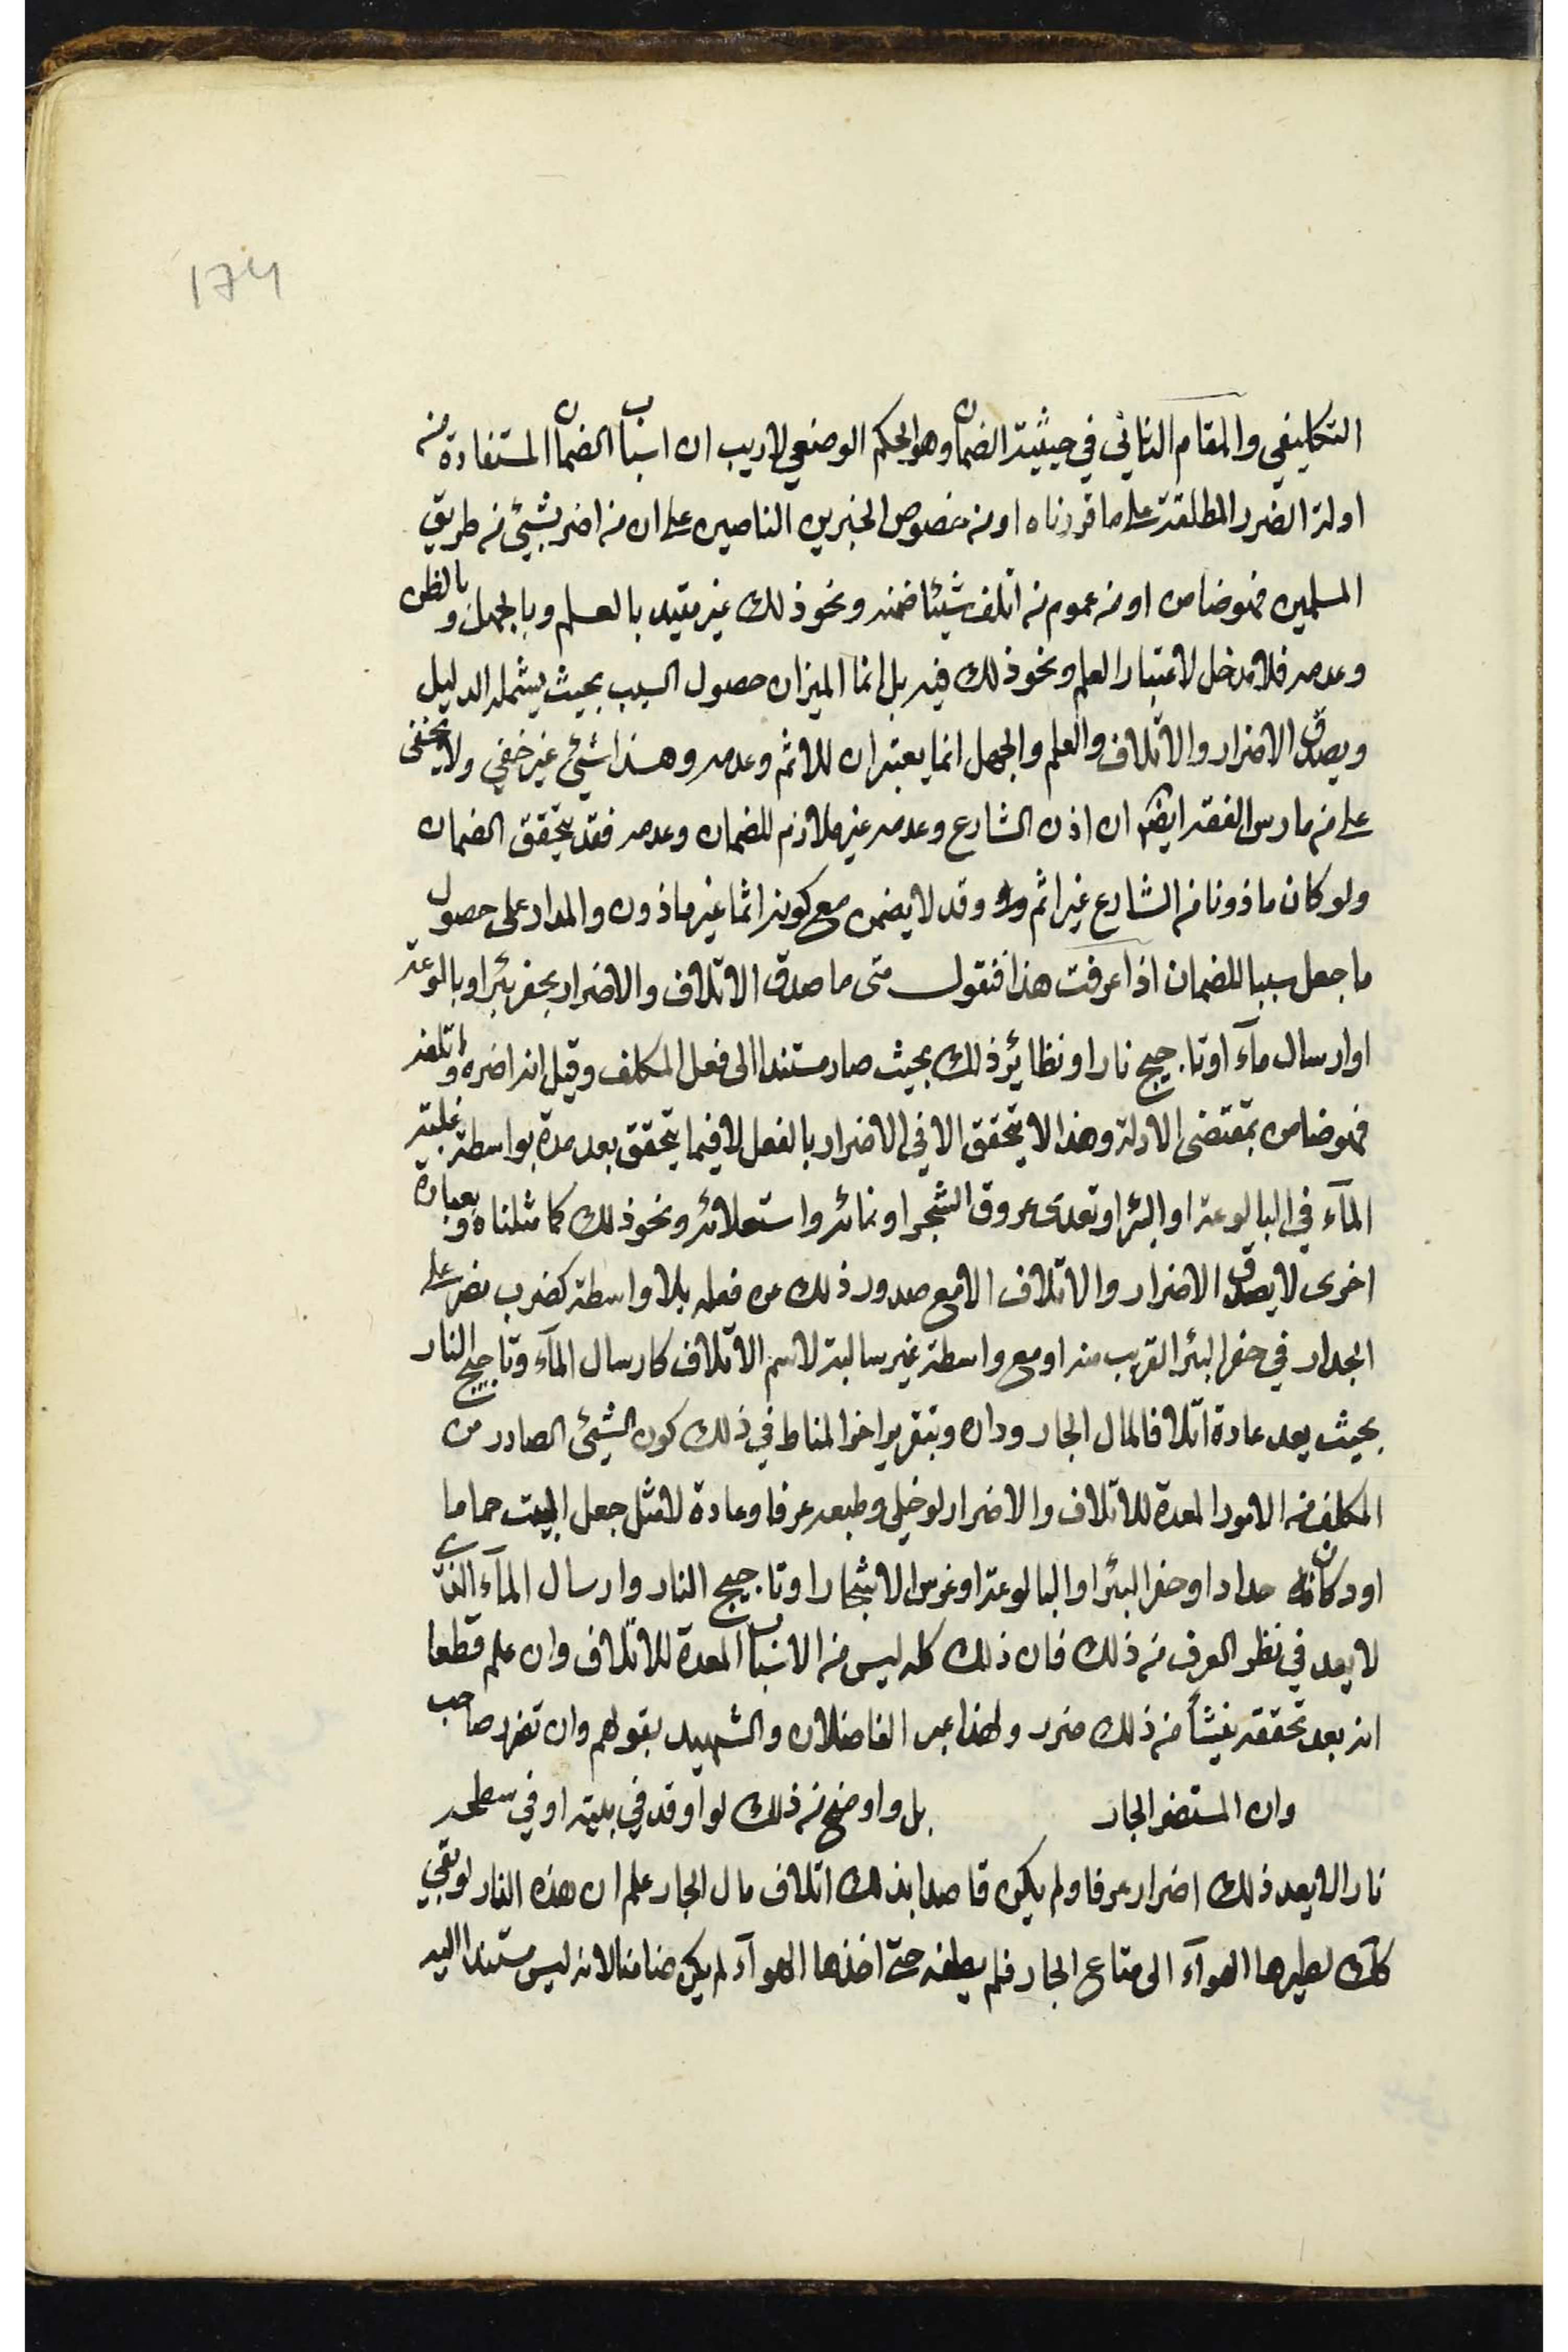 174
التكليفي والمقام الثاني في حيثية الضمان وهو الحكم الوضعي لا ريب ان اسباب الضمان المستفادة من
ادلة الضرر المطلقة على ما قررناه او من خصوص الخبرين الناصين على ان من اضر بشيئ من طريق
المسلمين فهو ضامن او من عموم من اتلف شيئا ضمنه ونحو ذلك غير مقيد بالعلم وبالجهل وبالظن
وعدمه فلا مدخل لاعتبار العلم ونحو ذلك فيه بل انما الميزان حصول السبب بحيث يشمله الدليل
ويصدق الاضرار والاتلاف والعلم والجهل انما يعتبران للاثم وعدمه وهذا شيئ غير خفي ولا يخفى
على من مارس الفقه ايضا ان اذن الشارع وعدمه غير ملازم للضمان وعدمه فقد يتحقق الضمان
ولو كان ماذونا من الشارع غير اثم وقد لا يضمن مع كونه اثما غير ماذون والمدار على حصول
ما جعل سببا للضمان اذا عرفت هذا فنقول متى ما صدق الاتلاف والاضرار بحفر بئر او بالوعة
او ارسال مآء او تاجيج نار او نظائر ذلك بحيث صار مستندا الى فعل المكلف وقيل انه اضره واتلفه
فهو ضامن بمقتضى الادلة وهذا لا يتحقق الا في الاضرار بالفعل لا فيما يتحقق بعد مدة بواسطة غلبة
المآء في البالوعة او البئر او تعدى عروق الشجر او نمائه واستعلائه ونحو ذلك كما مثلناه وبعبارة
اخرى لا يصدق الاضرار والاتلاف الا مع صدور ذلك عن فعله بلا واسطة كضرب مضر على
الجدار في حفر البئر القريب منه او مع واسطة غير سالبة لاسم الاتلاف كارسال المآء وتاجيج النار
بحيث يعد عادة اتلافا لمال الجار وداره وبتقرير اخر المناط في ذلك كون الشيئ الصادر من
المكلف من الامور المعدة للاتلاف والاضرار لو خلي وطبعه عرفا وعادة لا مثل جعل البيت حماما
او دكان حداد او حفر البئر او البالوعة او غرس الاشجار او تاجيج النار وارسال المآء الذي
لا يعد في نظر العرف من ذلك فان ذلك كله ليس من الاسباب المعدة للاتلاف وان علم قطعا
انه بعد تحققه ينشأ من ذلك ضرر ولهذا عبر الفاضلان والشهيد بقولهم وان تضرر صاحب
وان استضر الجار بل واوضح من ذلك لو اوقد في بيته او في سطحه
نارا لا يعد ذلك اضرار عرفا ولم يكن قاصدا بذلك اتلاف مال الجار علم ان هذه النار لو بقي
كك لطيرها الهوآء الى متاع الجار فلم يطفه حتى اخذها الهوآء لم يكن ضامنا لانه ليس مستندا اليه